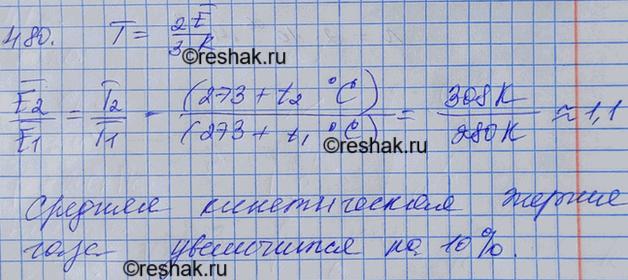 480. T = 2Ē / 3 K
©reshak.ru
Ē2/Ē1 = T2/T1 = (273 + t2 °C) / (273 + t1 °C) = 308K / 280K ≈ 1,1
©reshak.ru
©reshak.ru
Средняя кинетическая энергия
газа увеличится на 10%.
©reshak.ru
©reshak.ru